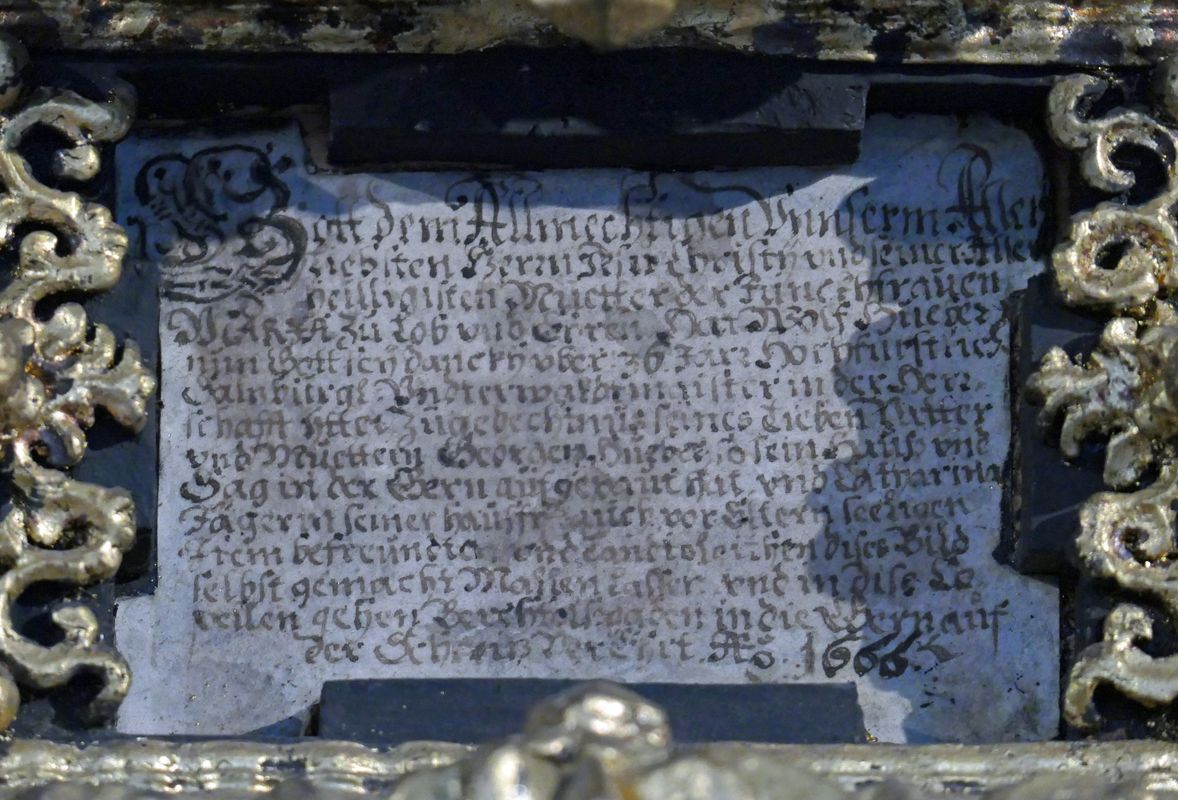 Gott dem Allmechtigen Vnnserm Aller
liebsten Herrn Jesu Christy vnd seiner Aller
heilligisten Muetter der Junckhfrauen
MARIA zu Lob vnd Erren Hat Wolf Hueber
nun Gott sey danckh yber 36 Jarr Hochfürstlich
Salzburgl: Vndterwaldtmaister in der Herr
schafft ytter zu gedechtnus seines Lieben Vatter
vnd Muettern Georgen Hueber so sein Hauß vnd
Sag in der Gern auf gebaut hat vnd Catharina
Jägerin seiner hausfr: auch vor Eltern seeligen
Item befreundten vnd dises Bild
selbst gemacht lassen vnd in dise
gehen Berchtolsgaden in die Gern auf
der Verehrt Ao. 1666.